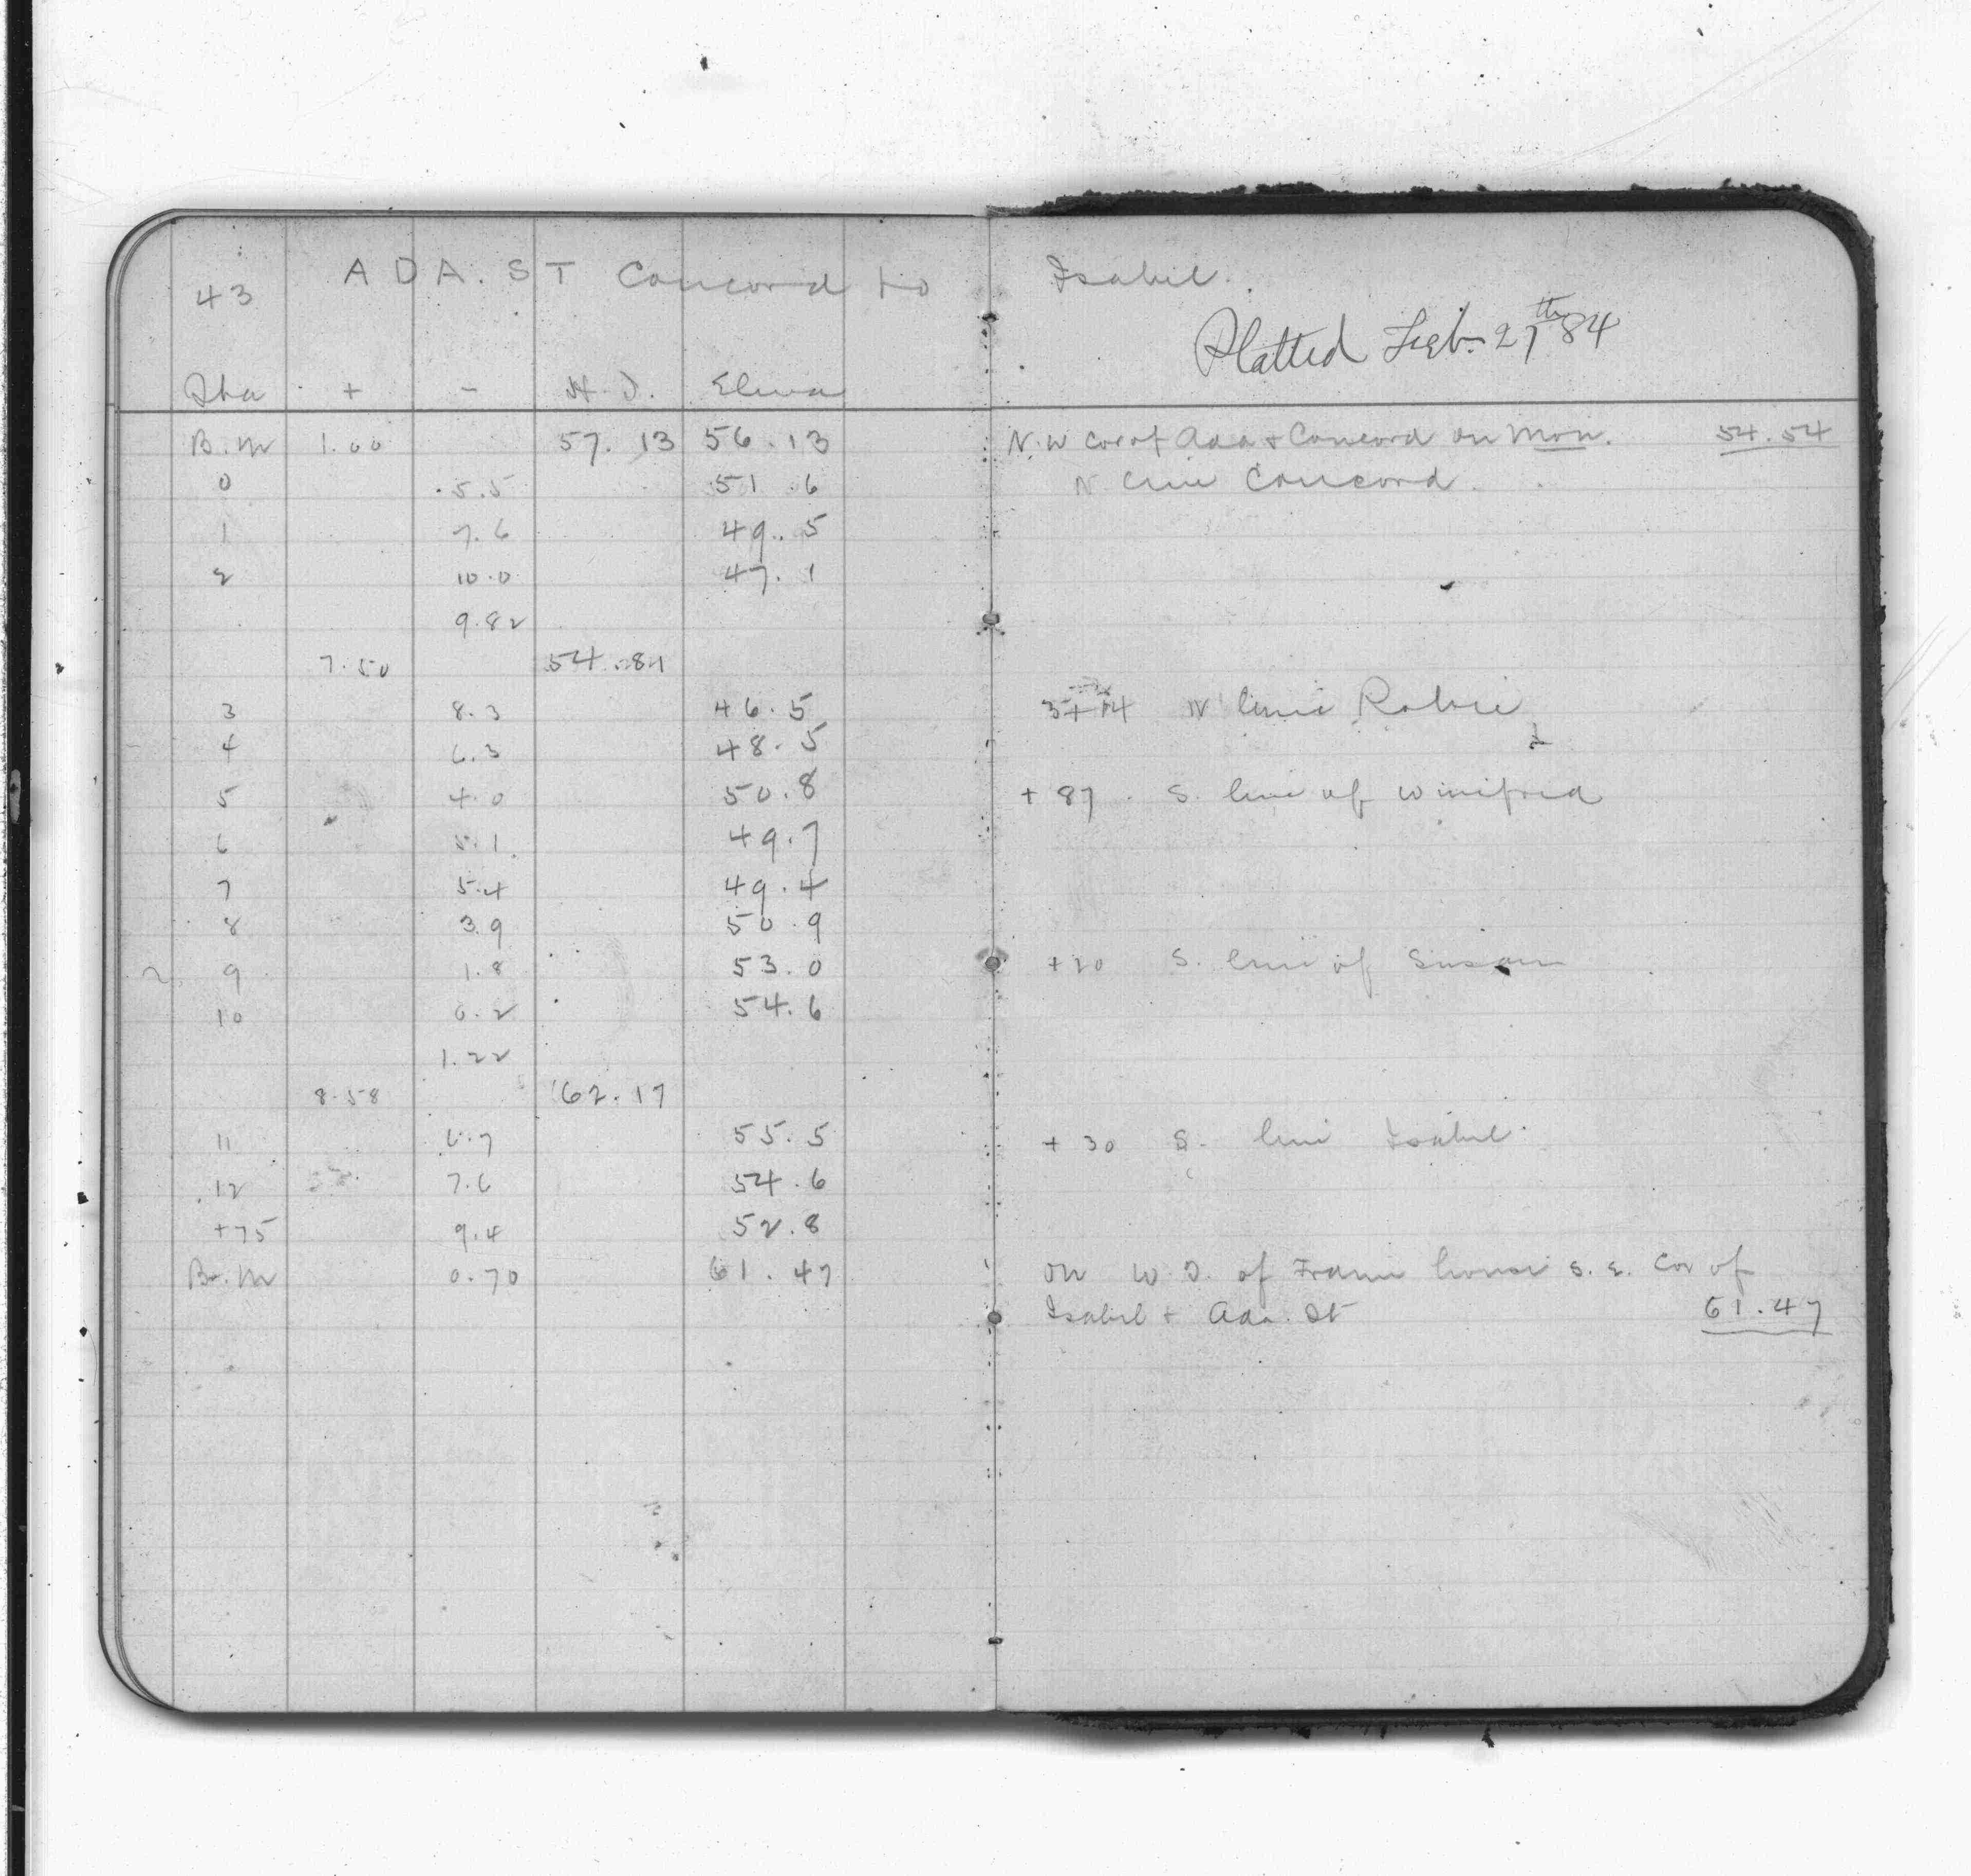 43 ADA. ST Concord to Isabel.
Platted Feb. 27th 84
Sta + - H.I. Eleva
B.M 1.00 57.13 56.13 N.W Cor of Ada + Concord on Mon. 54.54
0 5.5 51.6 N Line Concord.
1 7.6 49.5
2 10.0 47.1
9.82
7.50 54.81
3 8.3 46.5 N line Robie
4 6.3 48.5
5 4.0 50.8 + 87 S. line of Winifred
6 5.1 49.7
7 5.4 49.4
8 3.9 50.9
9 1.8 53.0 +20 S. line of Susan
10 0.2 54.6
1.22
8.58 62.17
11 6.7 55.5 + 30 S. line Isabel.
12 7.6 54.6
+75 9.4 52.8
B.M 0.70 61.47 on W.T. of Frame house S.E. Cor of
Isabel + Ada. St 61.47